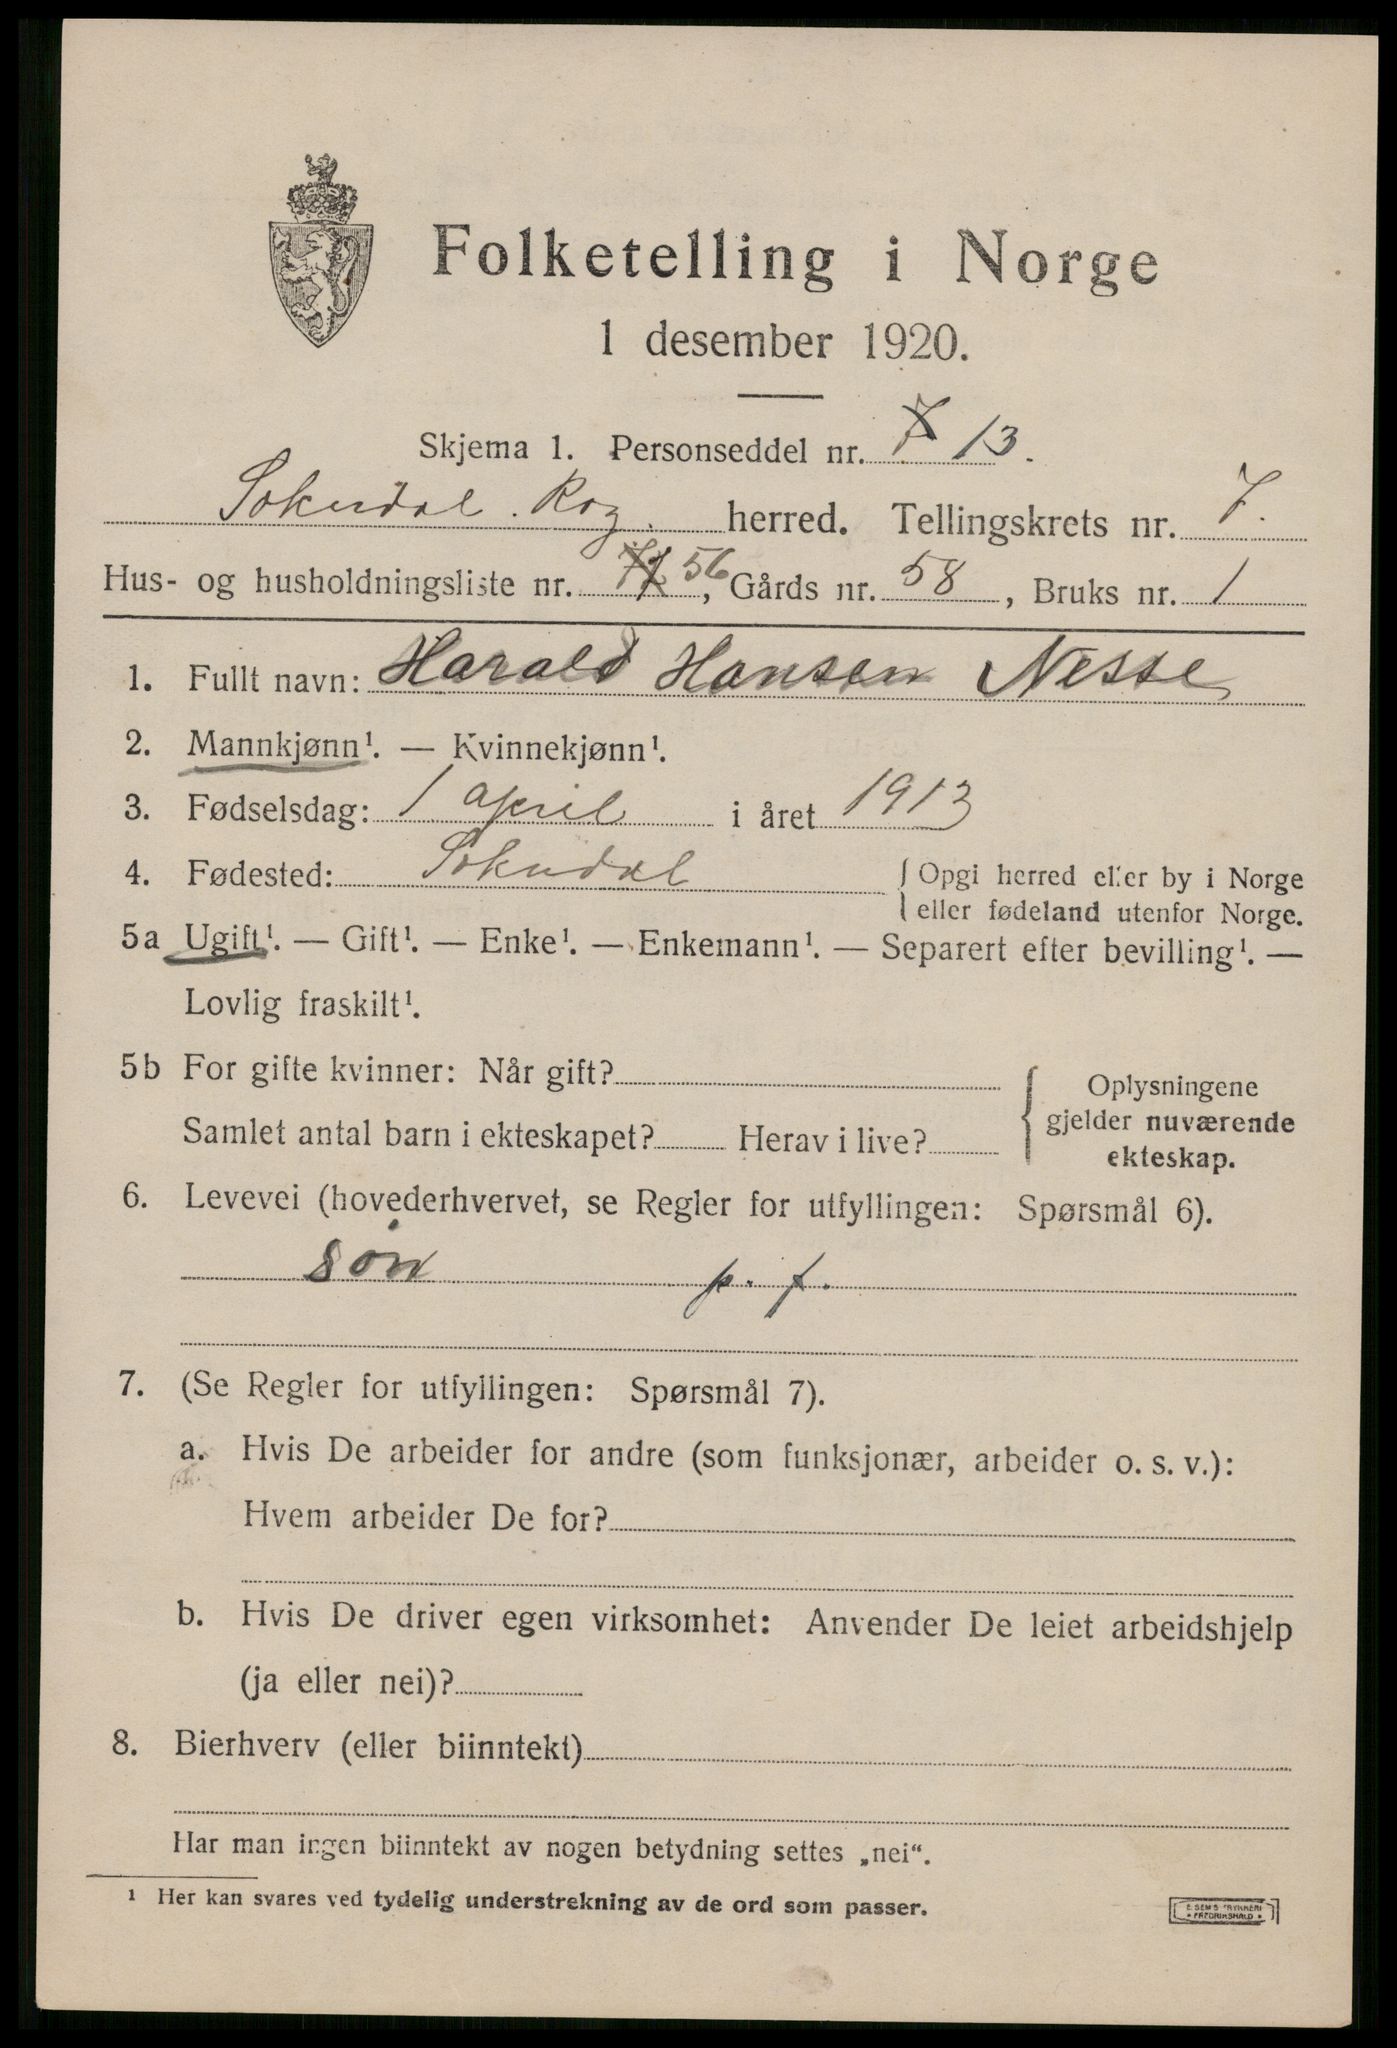 Folketelling i Norge
1 desember 1920.
Skjema 1. Personseddel nr. 7 13.
Sokndal. Rog. herred. Tellingskrets nr. 7.
Hus- og husholdningsliste nr. 56, Gårds nr. 58, Bruks nr. 1
1. Fullt navn: Harald Hansen Nesse
2. Mannkjønn¹. — Kvinnekjønn¹.
3. Fødselsdag: 1 april i året 1913
4. Fødested: Sokndal { Opgi herred eller by i Norge
eller fødeland utenfor Norge.
5a Ugift¹. — Gift¹. — Enke¹. — Enkemann¹. — Separert efter bevilling¹. —
Lovlig fraskilt¹.
5b For gifte kvinner: Når gift?
Samlet antal barn i ekteskapet? Herav i live?
{ Oplysningene
gjelder nuværende
ekteskap.
6. Levevei (hovederhvervet, se Regler for utfyllingen: Spørsmål 6).
søn p. f.
7. (Se Regler for utfyllingen: Spørsmål 7).
a. Hvis De arbeider for andre (som funksjonær, arbeider o. s. v.):
Hvem arbeider De for?
b. Hvis De driver egen virksomhet: Anvender De leiet arbeidshjelp
(ja eller nei)?
8. Bierhverv (eller biinntekt)
Har man ingen biinntekt av nogen betydning settes „nei“.
¹ Her kan svares ved tydelig understrekning av de ord som passer.
E SEM'S TRYKKERI
* FREDRIKSHALD *